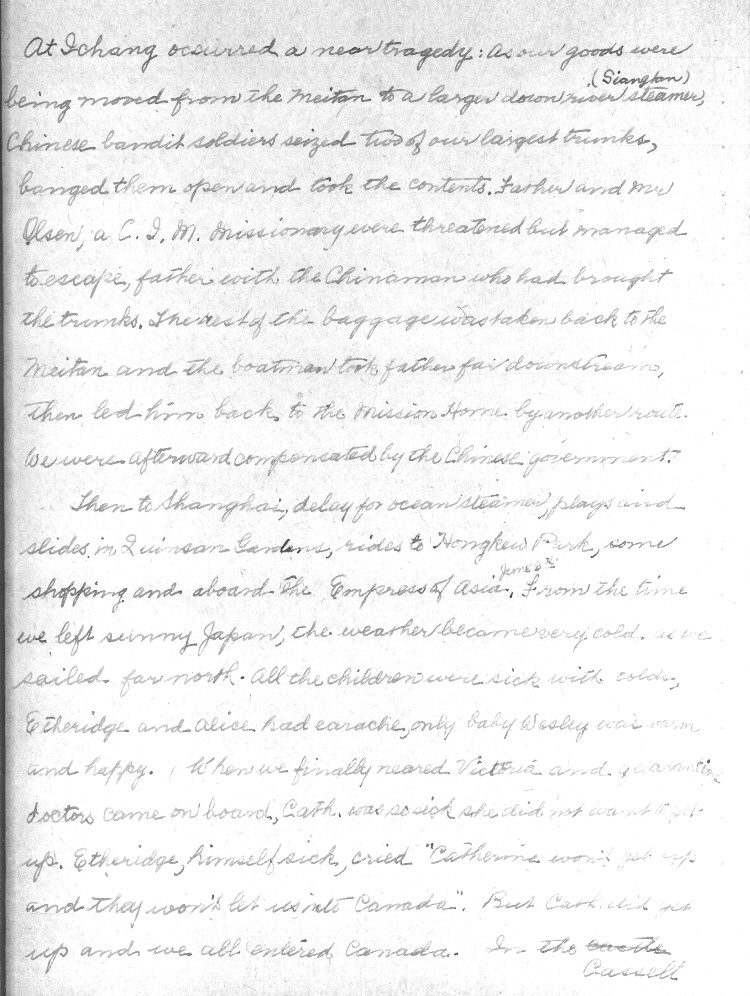 At Ichang occurred a near tragedy: As our goods were
(Siangtan)
being moved from the Meitan to a larger down river steamer,
Chinese bandit soldiers seized two of our largest trunks,
banged them open and took the contents. Father and Mr
Olsen, a C. I. M. Missionary were threatened but managed
to escape, father with the Chinaman who had brought
the trunks. The rest of the baggage was taken back to the
Meitan and the boatman took father far downstream,
then led him back to the Mission Home by another route.
We were afterward compensated by the Chinese government.
Then to Shanghai, delay for ocean steamer, plays and
slides in Quinsan Gardens, rides to Hongkew Park, some
shopping and aboard the Empress of Asia. From the time
we left sunny Japan, the weather became very cold as we
sailed far north. All the children were sick with colds,
Etheridge and Alice had earache, only baby Wesley was warm
and happy. When we finally neared Victoria and quarantine
doctors came on board, Cath. was so sick she did not want to get
up. Etheridge, himself sick, cried "Catherine won't get up
and they won't let us into Canada". But Cath. did get
up and we all entered Canada. In the castle
Cassell